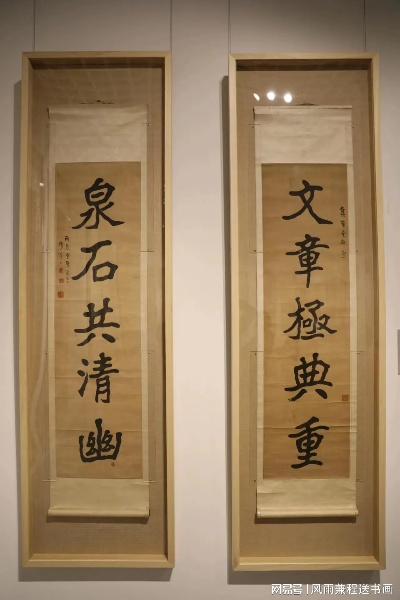 文章極典重
泉石共清幽
网易号 | 风雨兼程送书画